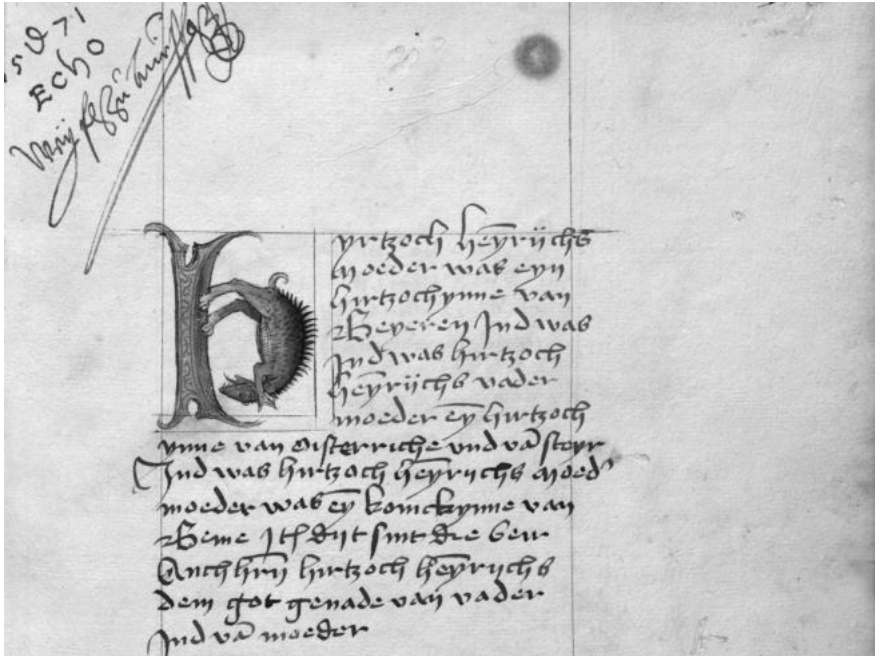 15 71
Echo
hyrtzoch heyrijchs
moeder was eyn
hirtzochynne van
Beyeren Ind was
Ind was hirtzoch
heyrijchs vader
moeder ey̅ hirtzoch
ynne van oisterriche vnd va̅ steyr
Ind was hirtzoch heyrijchs moed'
moeder was ey̅ konickynne van
Beme It dijt sint die
hirtzoch heyrijchs
dem got genade van vader
Ind va̅ moeder